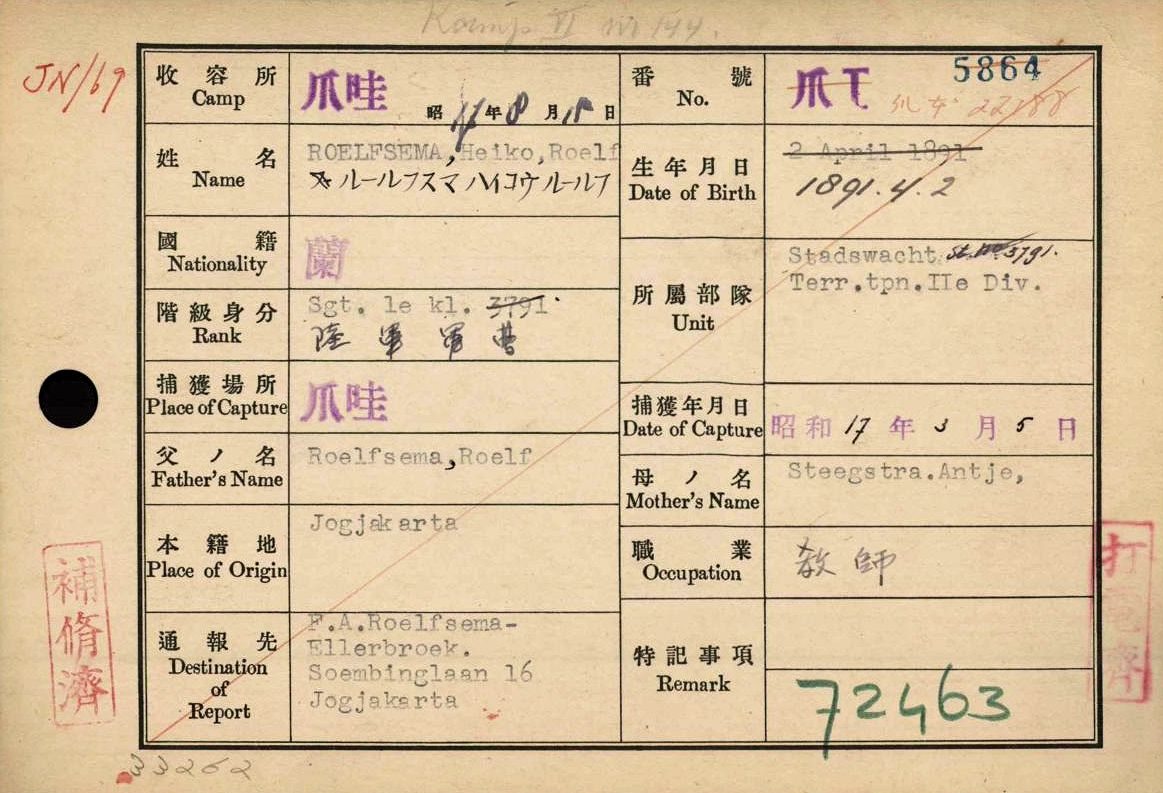 Kamp VI nr 144.
JN/69
收容所
Camp
爪哇
昭 17年 8月 15日
番號
No.
爪 T 5864
22188
姓名
Name
ROELFSEMA, Heiko, Roelf
ルールフスマ ハイコウ ルールフ
生年月日
Date of Birth
2 April 1891
1891.4.2
國籍
Nationality
蘭
所屬部隊
Unit
Stadswacht St. No 3791.
Terr.tpn.IIe Div.
階級身分
Rank
Sgt. 1e kl. 3791
陸軍軍曹
捕獲場所
Place of Capture
爪哇
捕獲年月日
Date of Capture
昭和 17 年 3 月 5 日
父ノ名
Father's Name
Roelfsema, Roelf
母ノ名
Mother's Name
Steegstra.Antje,
本籍地
Place of Origin
Jogjakarta
職業
Occupation
教師
通報先
Destination
of
Report
F.A.Roelfsema-
Ellerbroek.
Soembinglaan 16
Jogjakarta
特記事項
Remark
72463
補脩濟
打電濟
33262